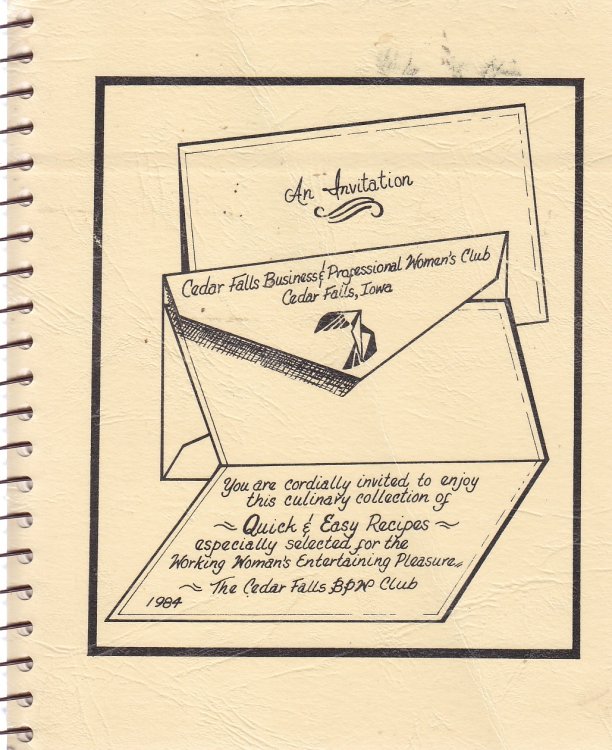 An Invitation
Cedar Falls Business & Professional Women's Club
Cedar Falls, Iowa
You are cordially invited to enjoy
this culinary collection of
~ Quick & Easy Recipes ~
especially selected for the
Working Woman's Entertaining Pleasure..
~ The Cedar Falls BPW Club
1984